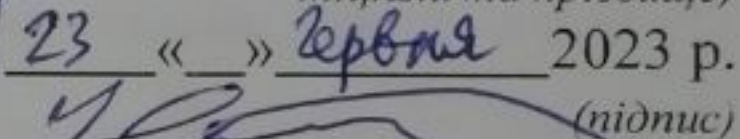 23 «__» червня 2023 р.
(підпис)